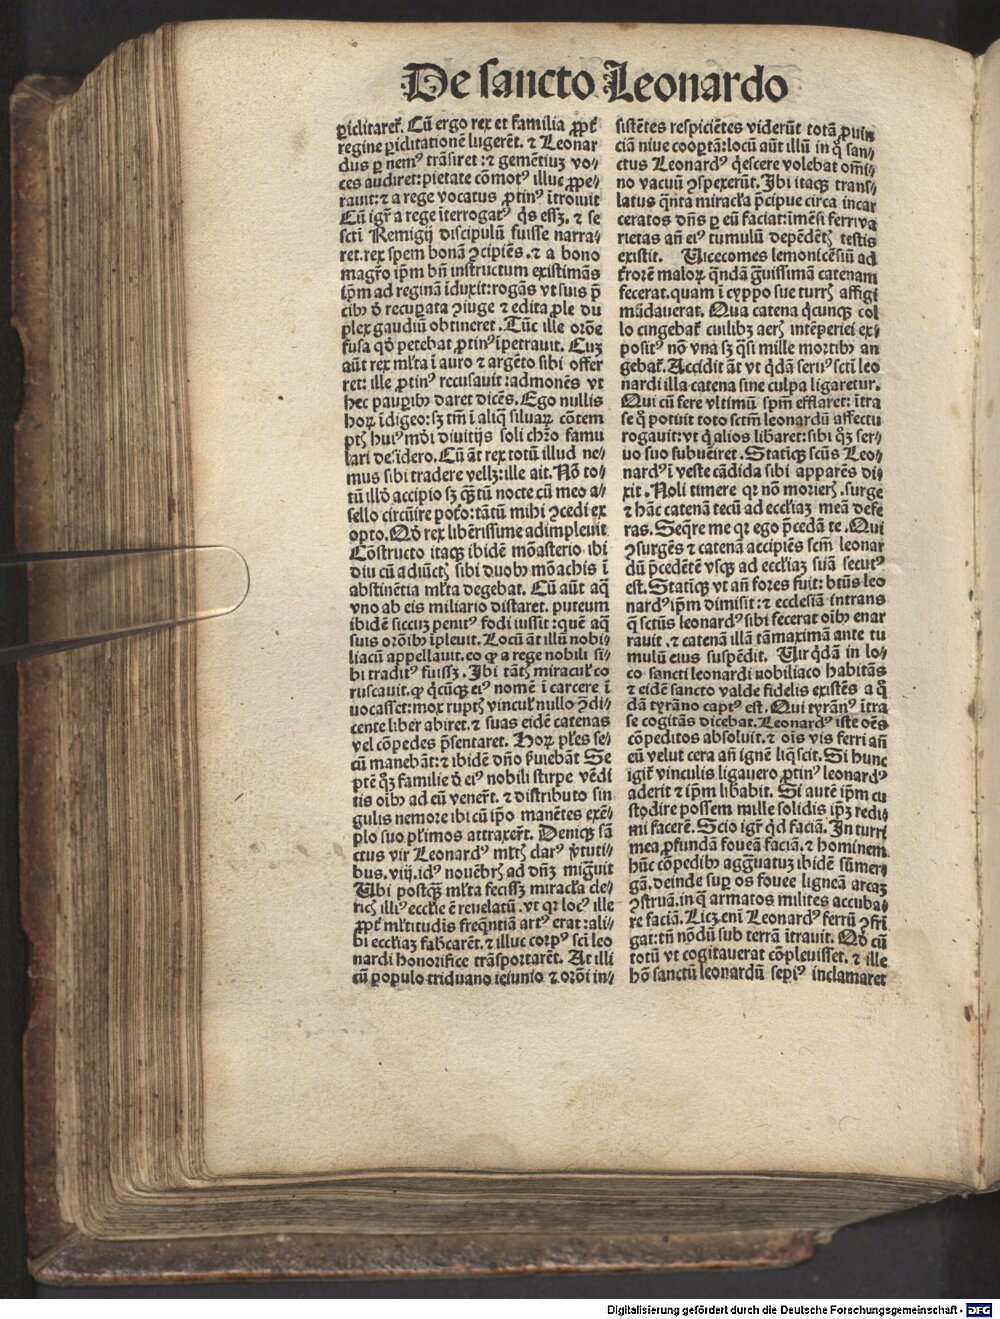 De sancto Leonardo
ꝑiclitaret᷑. Cū ergo rex et familia ꝓpt̄
regine ꝑiclitationē lugerēt. ⁊ Leonar
dus ꝑ nemꝰ trāsiret :⁊ gemētiuꝫ vo⸗
ces audiret:pietate cōmotꝰ illuc ꝓpe⸗
rauit:⁊ a rege vocatus ꝓtinꝰ ītroiuit
Cū igr̄ a rege īterrogatꝰ q̇s essꝫ. ⁊ se
scti Remigij discipulū fuisse narra⸗
ret.rex spem bonā ꝯcipiēs.⁊ a bono
magr̄o ip̄m bn̄ instructum existimās
ip̄m ad reginā īduxit:rogās vt suis p̄
cibꝰ ꝺ̄ recuꝑata ꝯiuge ⁊ edita ꝓle du
plex gaudiū obtineret. Tūc ille or̄oe
fusa qꝺ̄ petebat ꝓtinꝰ īpetrauit. Cuꝫ
aūt rex ml̄ta ī auro ⁊ argēto sibi offer
ret: ille ꝓtinꝰ recusauit :admonēs vt
hec pauꝑibꝰ daret dicēs. Ego nullis
hoꝝ īdigeo: sꝫ tm̄ ī aliq̄ siluaꝝ cōtem
ptꝭ huiꝰ mōi diuitijs soli chr̄o famu
lari desidero. Cū āt rex totū illud ne⸗
mus sibi tradere vellꝫ:ille ait. Nō to⸗
tū illꝺ̄ accipio sꝫ q̄ꝫtū nocte cū meo a⸗
sello circūire pot̄o: tātū mihi ꝯcedi ex
opto. Qꝺ̄ rex liberissime adimpleuit
Cōstructo itaqꝫ ibidē mōasterio ibi
diu cū adiūctꝭ sibi duobꝰ mōachis ī
abstinētia ml̄ta degebat. Cū aūt aq̄
vno ab eis miliario distaret. puteum
ibidē siccuꝫ penitꝰ fodi iussit :quē aq̄
suis or̄oībꝰ īpleuit. Locū āt illū nobi⸗
liacū appellauit.eo ꝙ a rege nobili si⸗
bi traditꝰ fuissꝫ. Ibi tātꝭ miracul̄ co
ruscauit.ꝙ q̇cūqꝫ eiꝰ nomē ī carcere ī
uocasset:mox ruptꝭ vincul̄ nullo ꝯ̄di⸗
cente liber abiret.⁊ suas eidē catenas
vel cōpedes p̄sentaret. Hoꝝ pl̄es se⸗
cū manebāt:⁊ ibidē dn̄o ẜuiebāt Se
ptē qꝫ familie ꝺ̄ eiꝰ nobili stirpe vēdi
tis oībꝰ ad cū venerūt. ⁊ distributo sin
gulis nemore ibi cū ip̄o manētes exē⸗
plo suo pl̄imos attraxerūt. Deniqꝫ sā
ctus vir Leonardꝰ ml̄tꝭ clarꝰ v̄tuti⸗
bus.viij.idꝰ nouēbrꝭ ad dn̄ꝫ migrauit
Ubi postq̄ꝫ ml̄ta fecissꝫ miracl̄a cle⸗
ricꝭ illiꝰ eccl̄ie ē reuelatū .vt qꝛ locꝰ ille
ꝓpt̄ ml̄titudis freq̄ntiā artꝰ erat :ali⸗
bi eccl̄iaꝫ fabricarēt.⁊ illuc corpꝰ scī leo
nardi honorifice trāsportarēt. At illi
cū populo triduano ieiunio ⁊ or̄oni in⸗
sistētes respiciētes viderūt totā ꝓuin
ciā niue cooꝑtā:locū aūt illū in q̄ san⸗
ctus Leonardꝰ q̇escere volebat om̄i⸗
no vacuū ꝯspexerūt. Ibi itaqꝫ trans⸗
latus q̄nta miracl̄a p̄cipue circa incar
ceratos dn̄s ꝑ eū faciat:īmēsi ferri va
rietas añ eiꝰ tumulū depēdētꝭ testis
existit. Uicecomes lemonicēsiū ad
t̄rorē maloꝝ q̄ndā gͣuissimā catenam
fecerat.quam ī cyppo sue turrꝭ affigi
mādauerat. Qua catena q̇cunqꝫ col
lo cingebat᷑ cuilibꝫ aerꝭ intēperiei ex⸗
positꝰ nō vna sꝫ q̄si mille mortibꝰ an
gebat᷑. Accidit āt vt q̇dā seruꝰ scti leo
nardi illa catena sine culpa ligaretur.
Qui cū fere vltimū spm̄ efflaret: ītra
se q̄ potuit toto sctm̄ leonardū affectu
rogauit: vt q̇ alios liberaret: sibi qꝫ ser⸗
uo suo subueīret. Statīqꝫ scūs Leo⸗
nardꝰ ī veste cādida sibi apparēs di⸗
xit. Noli timere qꝛ nō morierꝭ .surge
⁊ hāc catenā tecū ad eccl̄iaꝫ meā defe
ras. Seq̄re me qꝛ ego p̄cedā te. Qui
ꝯsurgēs ⁊ catenā accipiēs scm̄ leonar
dū p̄cedētē vsqꝫ ad eccl̄iaꝫ suā secutꝰ
est. Statīqꝫ vt añ fores fuit: btūs leo
nardꝰ ip̄m dimisit :⁊ ecclesiā intrans
q̄ sctūs leonardꝰ sibi fecerat oībꝰ enar
rauit .⁊ catenā illā tāmaximā ante tu
mulū eius suspēdit. Uir q̇dā in lo⸗
co sancti leonardi nobiliaco habitās
⁊ eidē sancto valde fidelis existēs a q̇
dā tyrāno captꝰ est. Qui tyrānꝰ ītra
se cogitās dicebat. Leonardꝰ iste oēs
cōpeditos absoluit.⁊ oīs vis ferri añ
eū velut cera añ ignē liq̄scit. Si hunc
igit᷑ vinculis ligauero ꝓtinꝰ leonardꝰ
aderit ⁊ ip̄m liberabit. Si autē ip̄m cu
stodire possem mille solidis ip̄ꝫ redi⸗
mi facerē. Scio igr̄ q̇d faciā. In turri
mea ꝓfundā foueā faciā.⁊ hominem
hūc cōpedibꝰ aggͣuatuꝫ ibidē sūmer⸗
gā. deinde suꝑ os fouee ligneā arcaꝫ
ꝯstruā.in q̄ armatos milites accuba⸗
re faciā. Licꝫ eni Leonardꝰ ferrū ꝯfrī
gat:tn̄ nōdū sub terrā ītrauit. Qꝺ̄ cū
totū vt cogitauerat cōpleuisset. ⁊ ille
hō sanctū leonardū sepiꝰ inclamaret
Digitalisierung gefördert durch die Deutsche Forschungsgemeinschaft - DFG